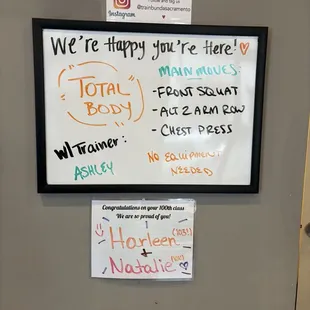 Instagram
We're Happy you're Here!
TOTAL BODY
MAIN MOVES:
- FRONT SQUAT
- ALT 2 ARM ROW
- CHEST PRESS
w/ Trainer:
ASHLEY
NO EQUIPMENT
NEEDED
Congratulations on your 100th class
We are so proud of you!
Harleen
+
Natalie